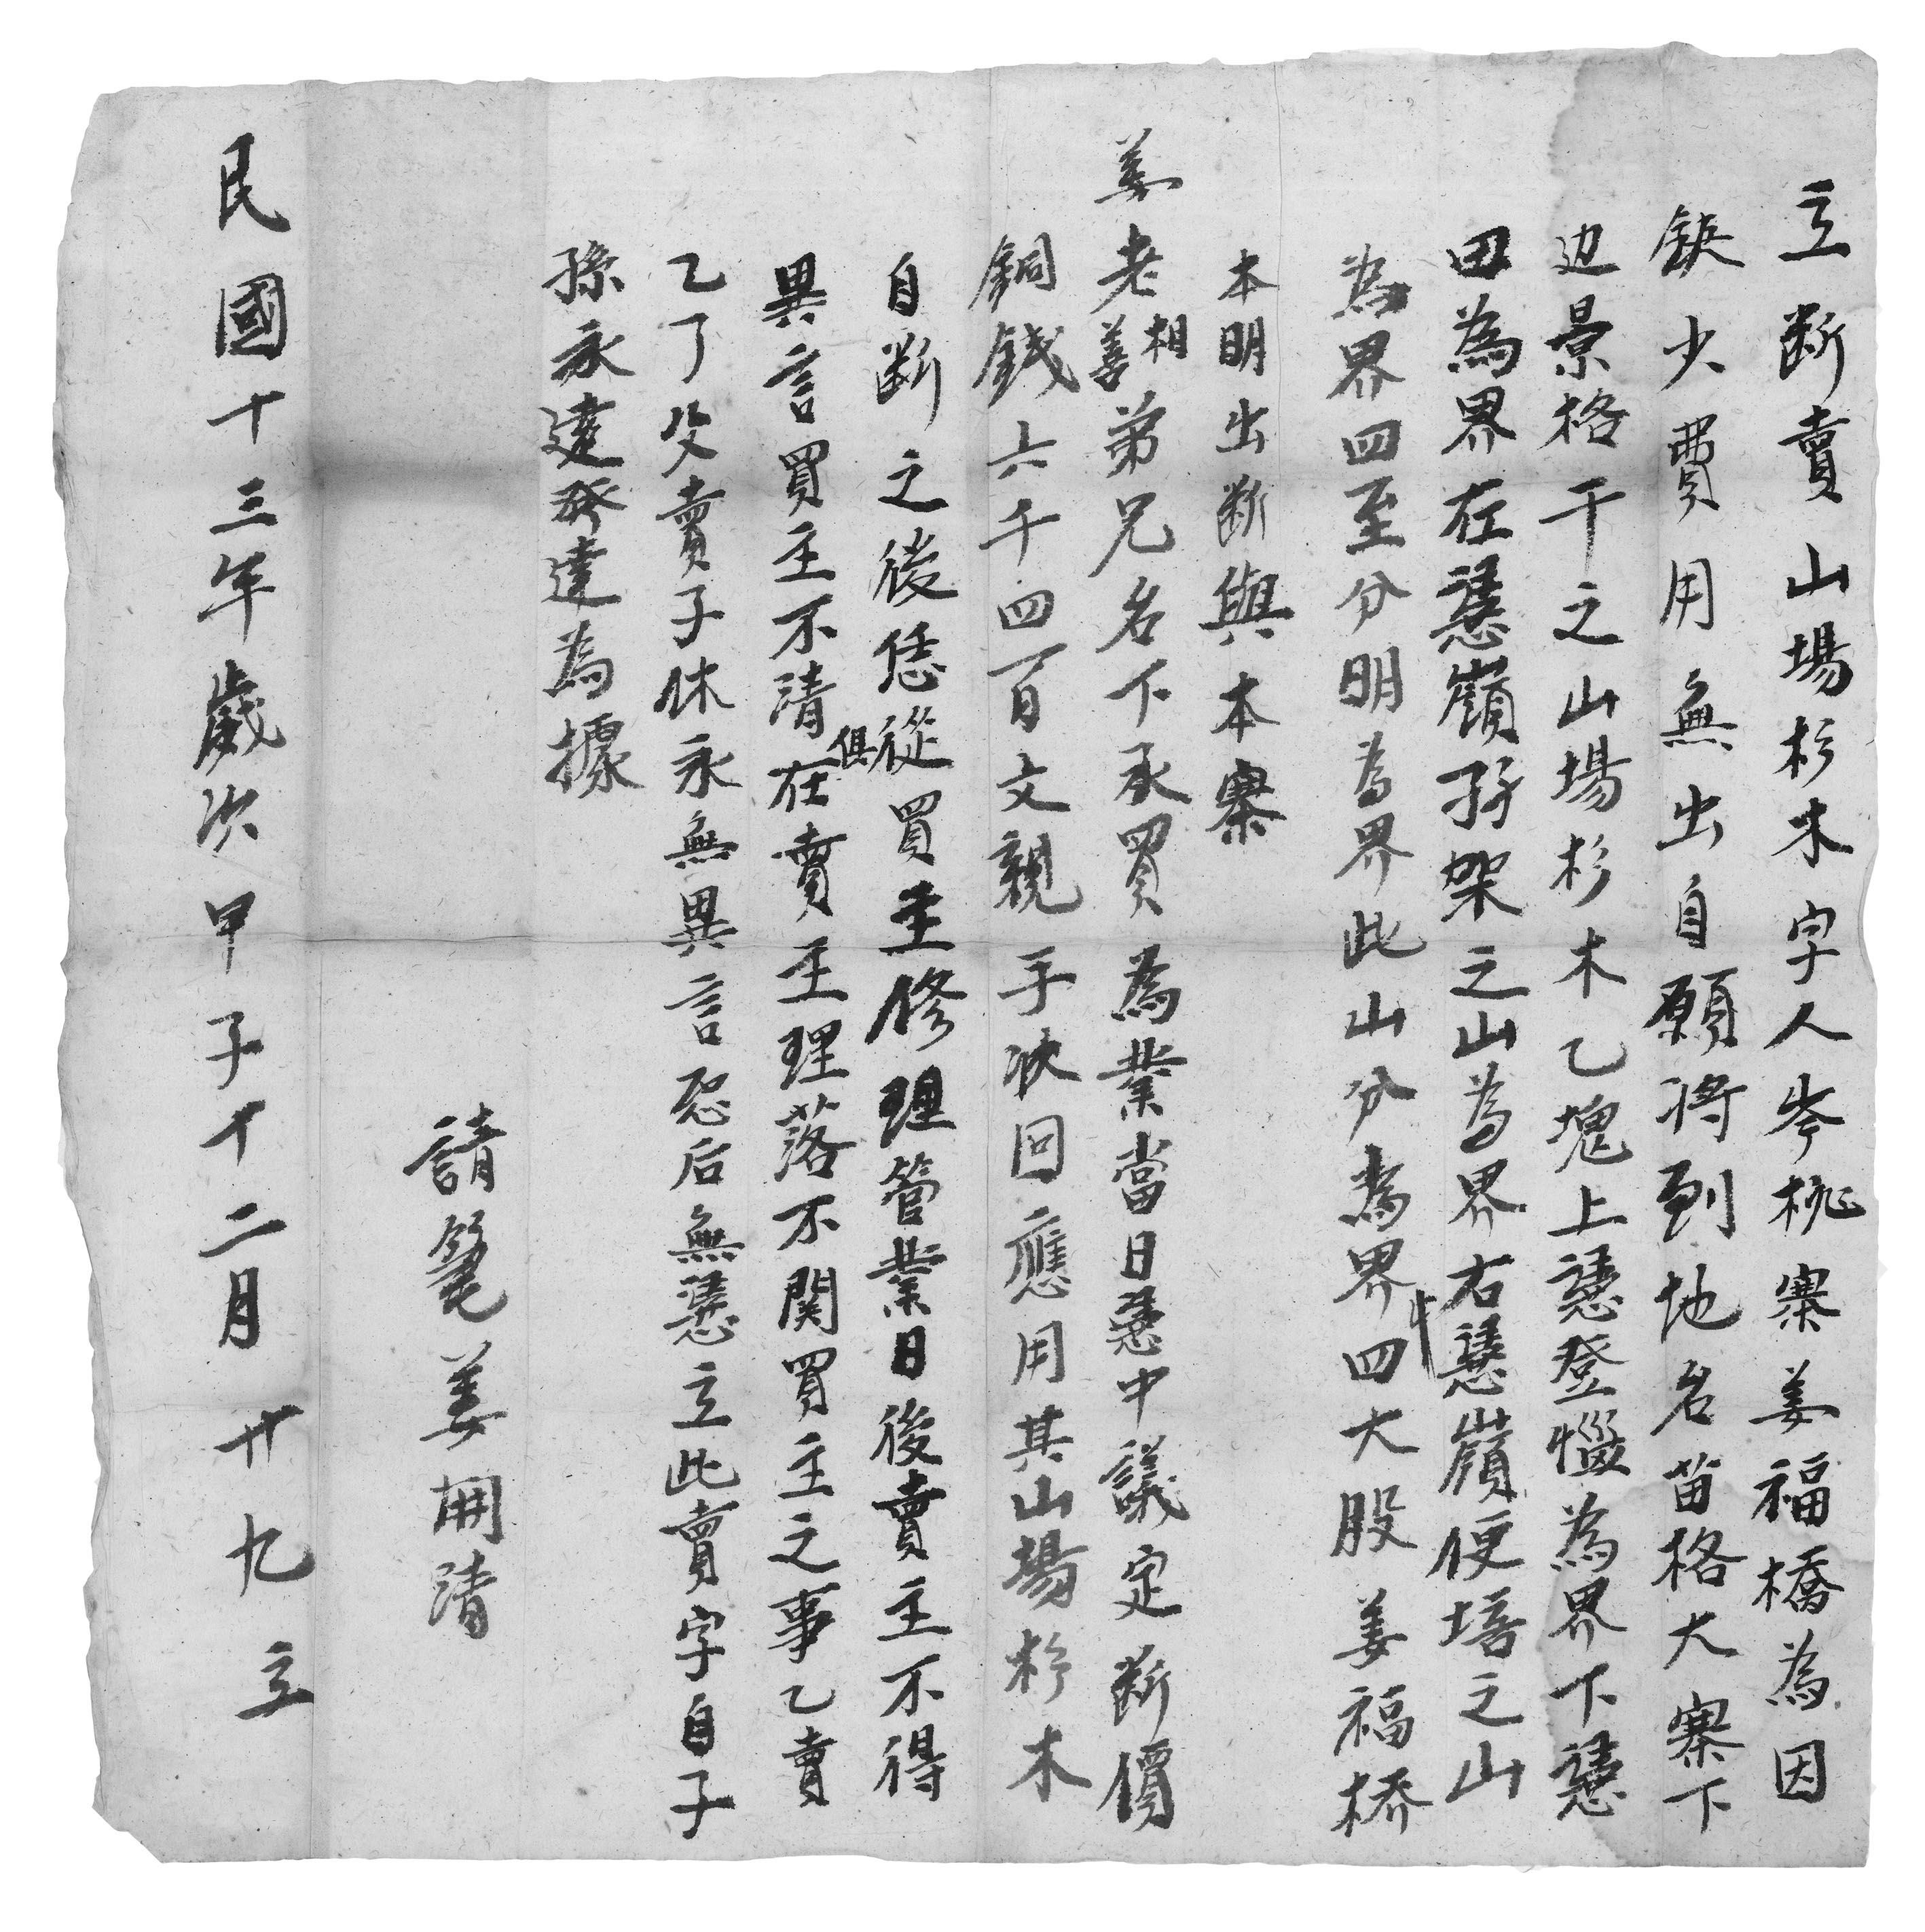 立断賣山場杉木字人岑桃寨姜福橋為因
缺少費用無出自願将到地名苗格大寨下
边景格干之山場杉木乙塊上憑登慃為界下憑
田為界在憑嶺孖架之山為界右憑嶺便培之山
為界四至分明為界此山分為界四大股姜福桥
本明出断與本寨
姜老相善弟兄名下承買為業當日憑中議定断價
銅錢六千四百文親手收回應用其山場杉木
自断之後恁從買主修理管業日後賣主不得
異言買主不清俱在賣主理落不関買主之事乙賣
乙了父賣子休永無異言恐后無憑立此賣字自子
孫永遠發達為據
請筆姜開清
民國十三年歲次甲子十二月廿九立